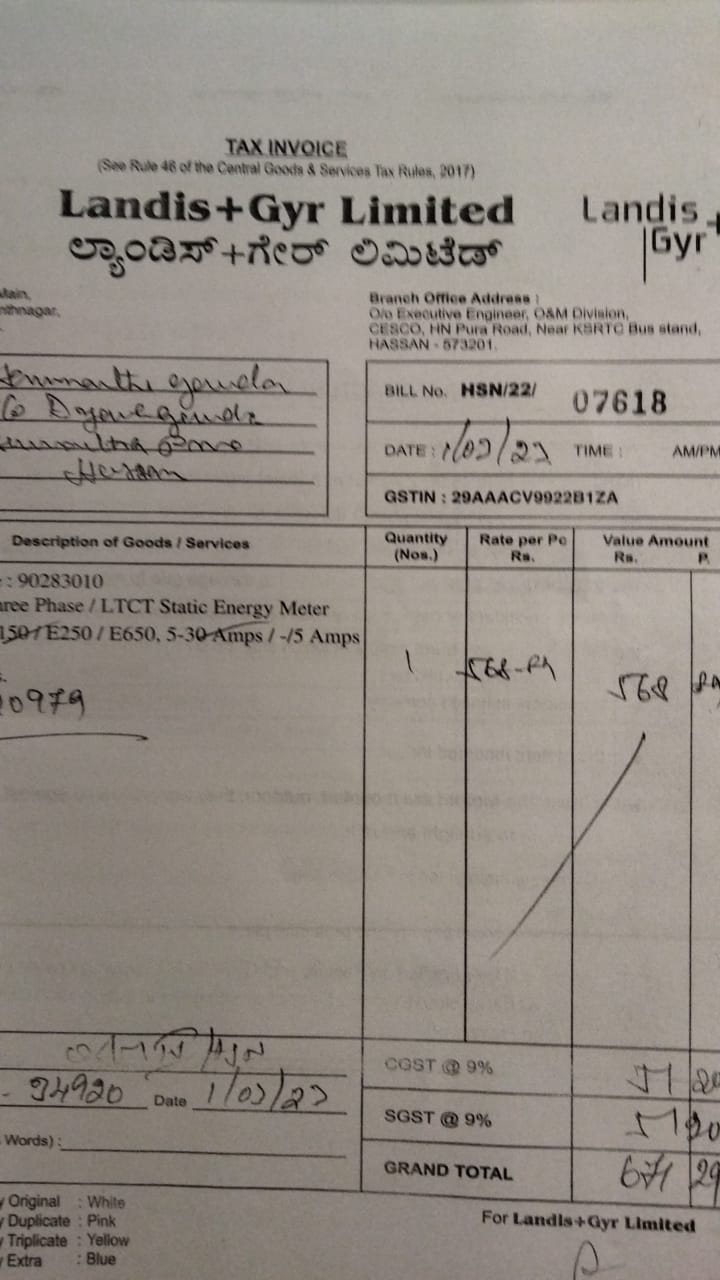 TAX INVOICE
(See Rule 46 of the Central Goods & Services Tax Rules, 2017)
Landis+Gyr Limited
ಲ್ಯಾಂಡಿಸ್+ಗೇರ್ ಲಿಮಿಟೆಡ್
Landis+
Gyr
Main,
nthnagar,
Branch Office Address :
O/o Executive Engineer, O&M Division,
CESCO, HN Pura Road, Near KSRTC Bus stand,
HASSAN - 573201.
gowda
Hassan
BILL No. HSN/22/ 07618
DATE : 1/03/23 TIME : AM/PM
GSTIN : 29AAACV9922B1ZA
Description of Goods / Services
Quantity (Nos.)
Rate per Pc Rs.
Value Amount Rs. P.
: 90283010
hree Phase / LTCT Static Energy Meter
150 / E250 / E650, 5-30 Amps / -/5 Amps
1 568 568
0979
HSN
34920 Date 1/03/23
Words) :
CGST @ 9% 51 20
SGST @ 9% 51 20
GRAND TOTAL 671 29
y Original : White
y Duplicate : Pink
y Triplicate : Yellow
y Extra : Blue
For Landis+Gyr Limited